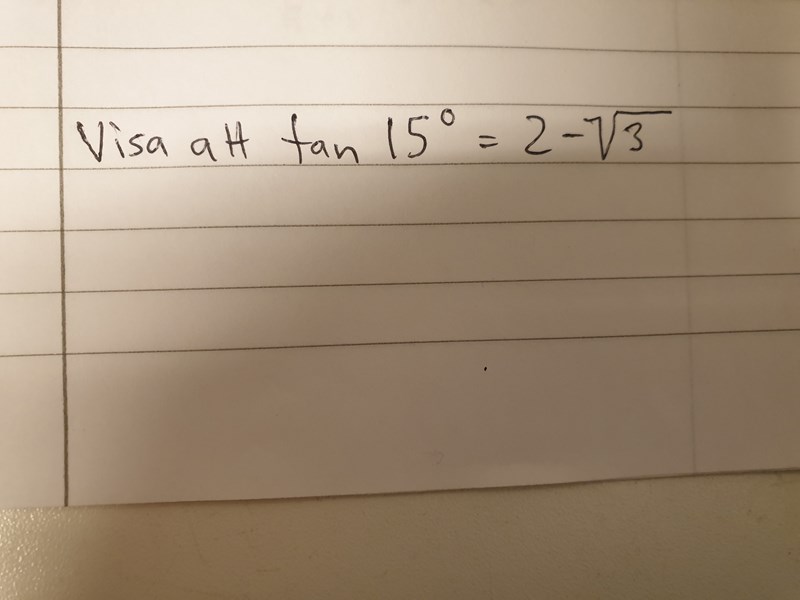 Visa att tan 15° = 2-√3